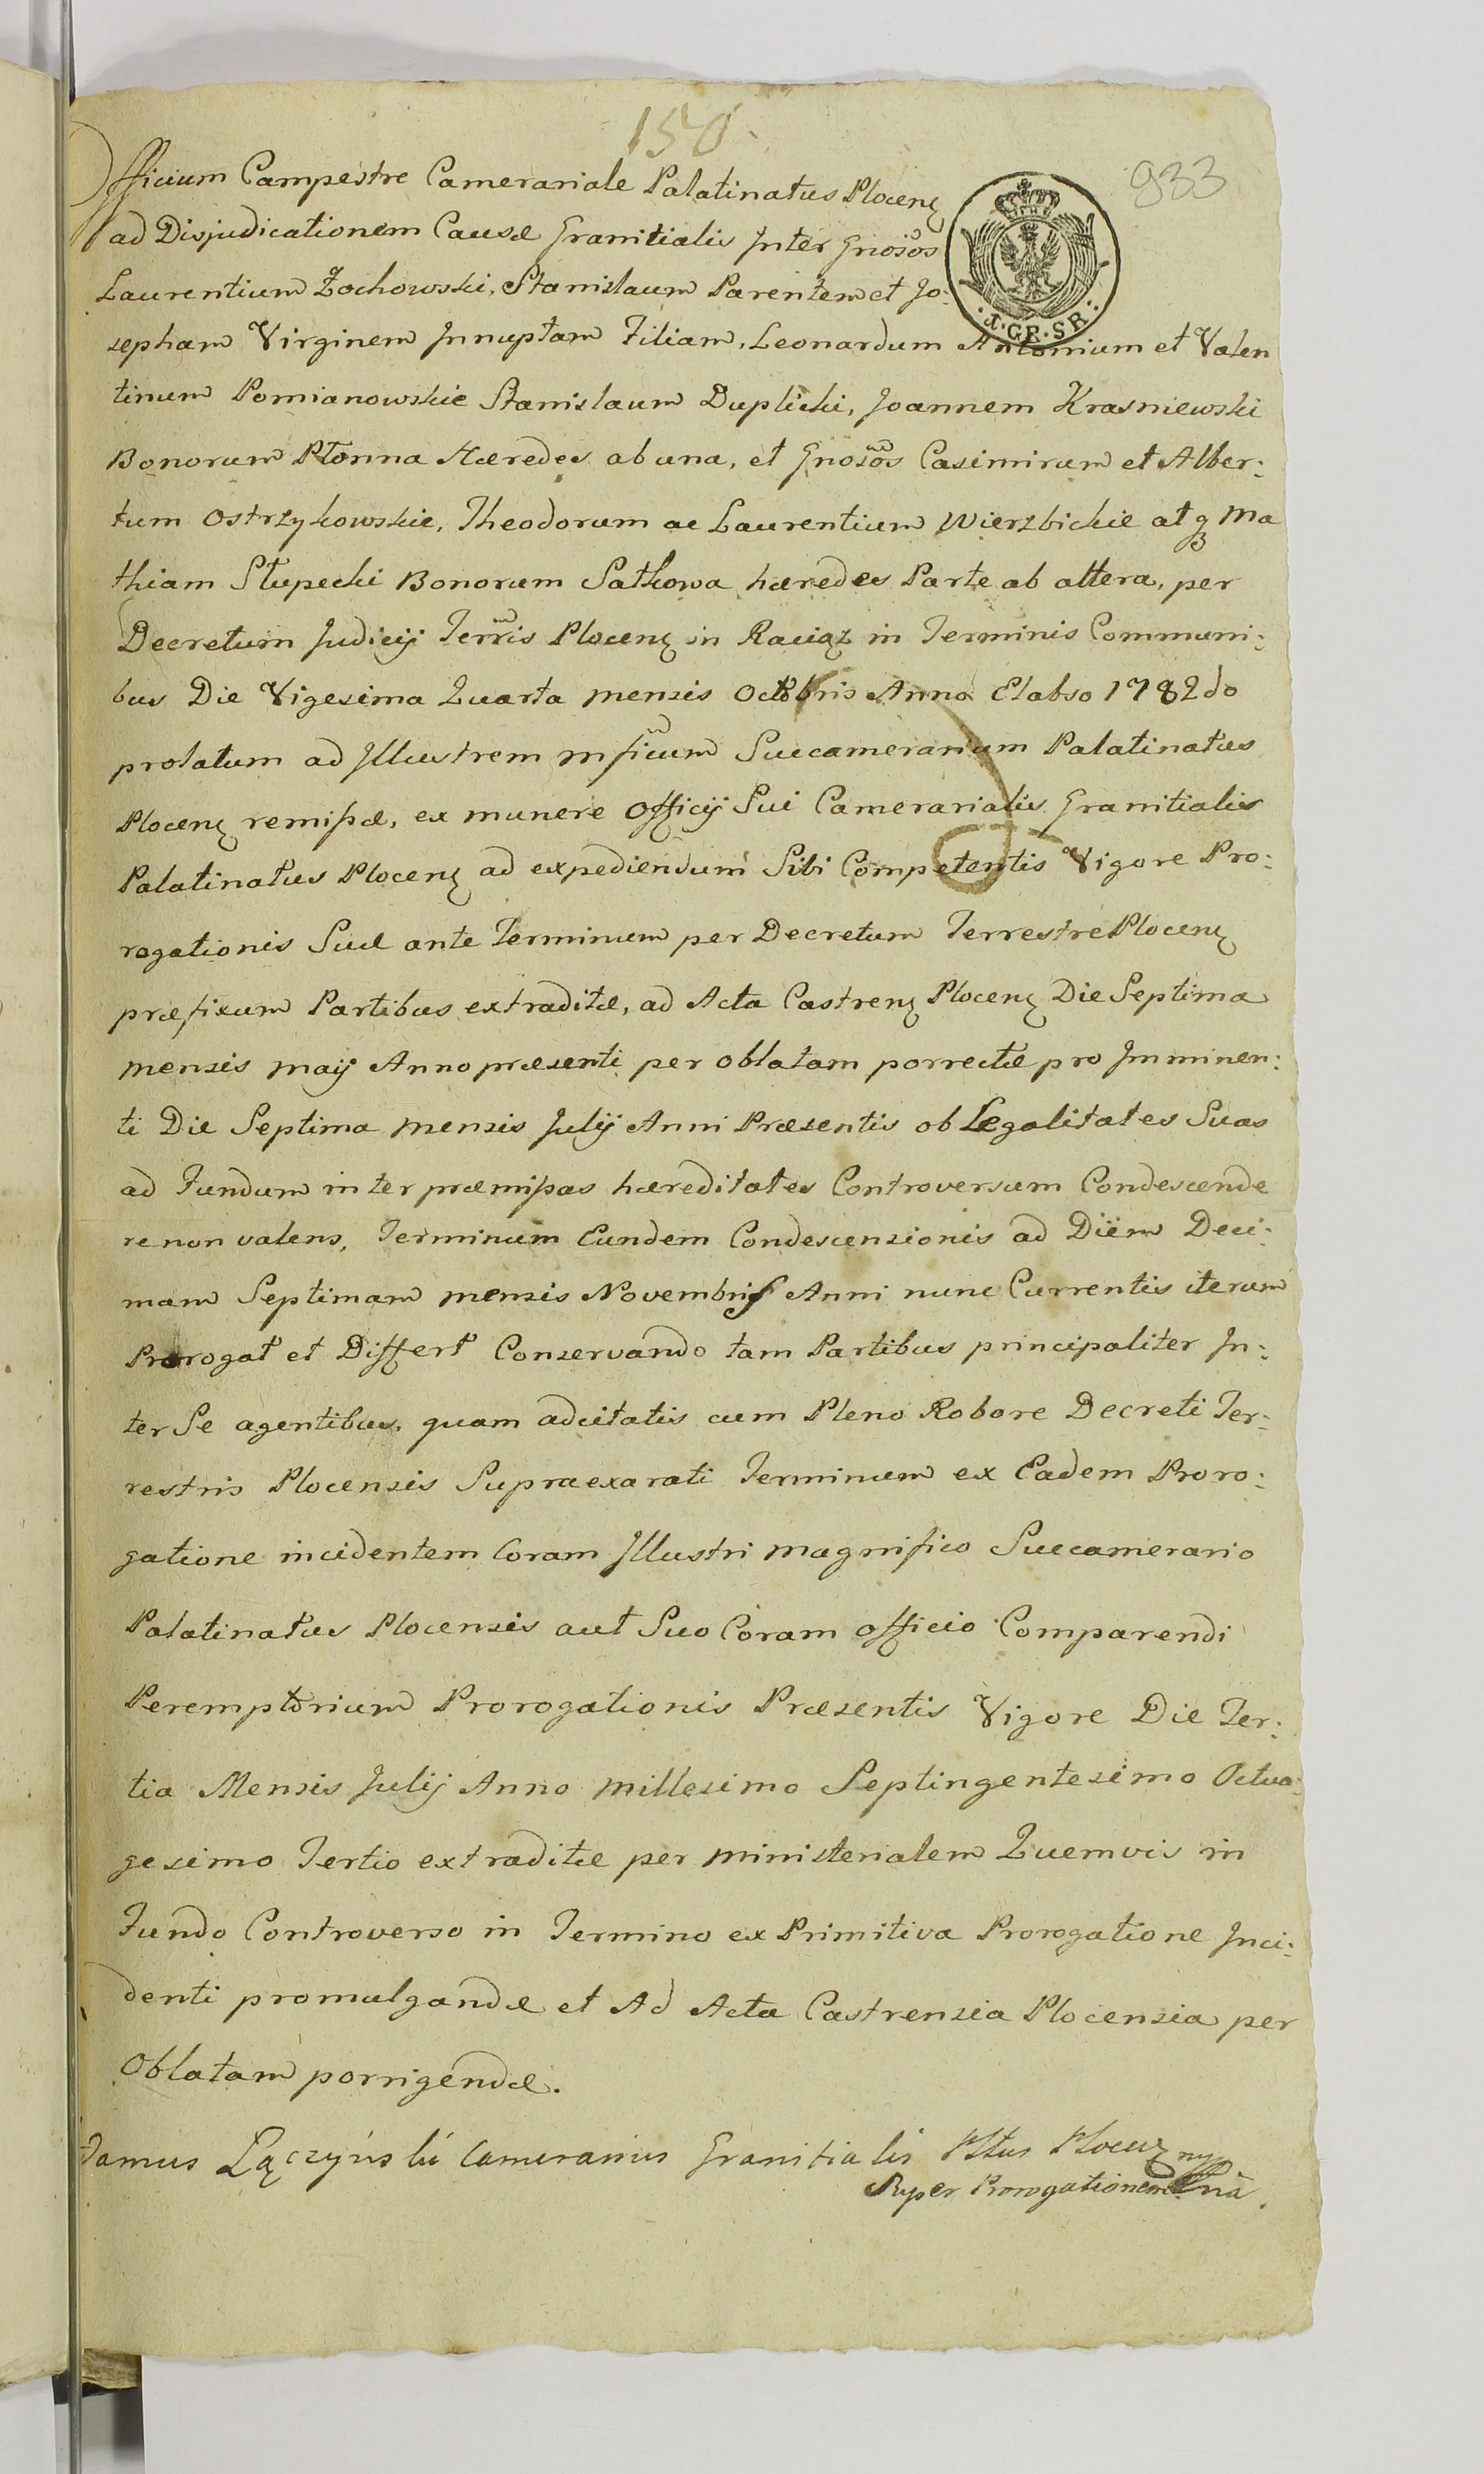 150.
933
Officium Campestre Camerariale Palatinatus Plocen͂
ad Disjudicationem Causæ Granitialis Inter Gnosos
X·GR·SR·
Laurentium Żochowski, Stanislaum Parentem et Jo:
sepham Virginem Innuptam Filiam, Leonardum Antonium et Valen
tinum Pomianowskie Stanislaum Duplicki, Joannem Krasniewski
Bonorum Płonna Hæredes ab una, et Gnosos Casimirum et Alber:
tum Ostrzykowskie, Theodorum ac Laurentium Wierzbickie atq3 Ma
thiam Słupecki Bonorum Satkowa hæredes Parte ab altera, per
Decretum Judicij Terris Plocen͂ in Raciąz in Terminis Communi:
bus Die Vigesima Quarta mensis Octobris Anno Elabso 1782do
prolatum ad Illustrem mficum Succamerarium Palatinatus
Plocen͂ remißæ, ex munere Officij Sui Camerarialis Granitialis
Palatinatus Plocen͂ ad expediendum Sibi Competentis Vigore Pro:
rogationis Suæ ante Terminum per Decretum Terrestre Plocen͂
præfixum Partibus extraditæ, ad Acta Castren͂ Plocen͂ Die Septima
mensis maij Anno præsenti per oblatam porrectæ pro Imminen:
ti Die Septima mensis Julij Anni Præsentis ob Legalitates Suas
ad Fundum inter præmißas hæreditates Controversum Condescende
re non valens, Terminum Eundem Condescensionis ad Diem Deci:
mam Septimam mensis Novembris Anni nunc Currentis iterum
Prorogat et Differt Conservando tam Partibus principaliter In:
ter Se agentibus, quam adcitatis cum Pleno Robore Decreti Ter:
restris Plocensis Supraexarati Terminum ex Eadem Proro:
gatione incidentem Coram Illustri magnifico Succamerario
Palatinatus Plocensis aut Suo Coram officio Comparendi
Peremptorium Prorogationis Præsentis Vigore Die Ter:
tia Mensis Julij Anno millesimo Septingentesimo Octua:
gesimo Tertio extraditæ per ministerialem Quemvis in
Fundo Controverso in Termino ex Primitiva Prorogatione Inci:
denti promulgandæ et Ad Acta Castrensia Plocensia per
Oblatam porrigendæ.
Łączyński Camerarius Granitialis Pltus Plocen͂
Super Prorogationem